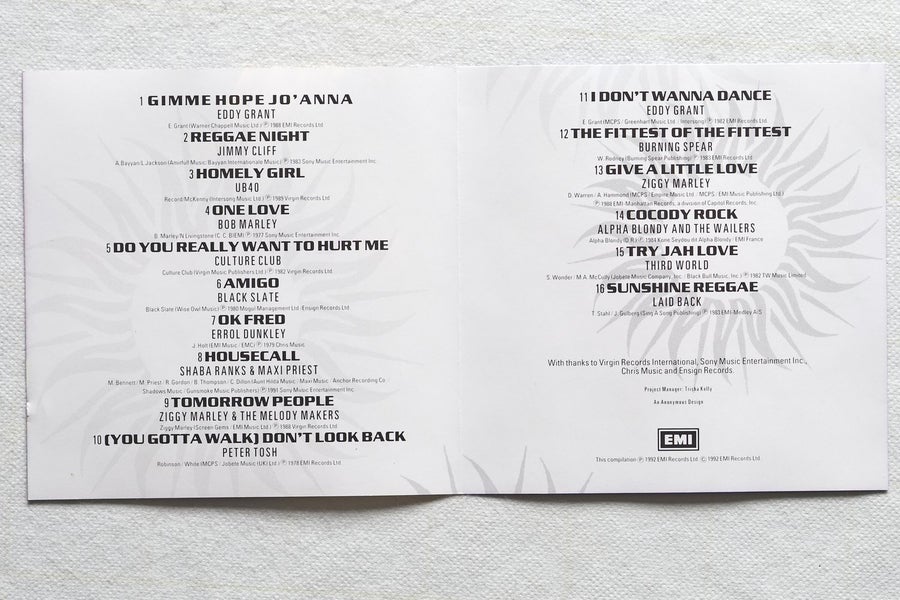 1 GIMME HOPE JO'ANNA
EDDY GRANT
E. Grant (Warner Chappell Music Ltd.) Ⓟ 1988 EMI Records Ltd
2 REGGAE NIGHT
JIMMY CLIFF
A. Bayyan/L. Jackson (Amirfull Music/Bayyan Internationale Music) Ⓟ 1983 Sony Music Entertainment Inc.
3 HOMELY GIRL
UB40
Record/McKenny (Intersong Music Ltd.) Ⓟ 1989 Virgin Records Ltd
4 ONE LOVE
BOB MARLEY
B. Marley/N Livingstone (C. C. B/EMI) Ⓟ 1977 Sony Music Entertainment Inc.
5 DO YOU REALLY WANT TO HURT ME
CULTURE CLUB
Culture Club (Virgin Music Publishers Ltd.) Ⓟ 1982 Virgin Records Ltd.
6 AMIGO
BLACK SLATE
Black Slate (Wise Owl Music) Ⓟ 1980 Mogul Management Ltd / Ensign Records Ltd
7 OK FRED
ERROL DUNKLEY
J. Holt (EMI Music / EMC) Ⓟ 1979 Chris Music
8 HOUSECALL
SHABA RANKS & MAXI PRIEST
M. Bennett / M. Priest / R. Gordon / B. Thompson / C. Dillon (Aunt Hilda Music / Maxi Music / Anchor Recording Co
Shadows Music / Gunsmoke Music Publishers) Ⓟ 1991 Sony Music Entertainment Inc.
9 TOMORROW PEOPLE
ZIGGY MARLEY & THE MELODY MAKERS
Ziggy Marley (Screen Gems / EMI Music Ltd.) Ⓟ 1988 Virgin Records Ltd
10 (YOU GOTTA WALK) DON'T LOOK BACK
PETER TOSH
Robinson / White (MCPS / Jobete Music (UK) Ltd.) Ⓟ 1978 EMI Records Ltd
11 I DON'T WANNA DANCE
EDDY GRANT
E. Grant (MCPS / Greenhart Music Ltd / Intersong) Ⓟ 1982 EMI Records Ltd
12 THE FITTEST OF THE FITTEST
BURNING SPEAR
W. Rodney (Burning Spear Publishing) Ⓟ 1983 EMI Records Ltd
13 GIVE A LITTLE LOVE
ZIGGY MARLEY
D. Warren / A. Hammond (MCPS / Empire Music Ltd. / MCPS / EMI Music Publishing Ltd.)
Ⓟ 1988 EMI-Manhattan Records, a division of Capitol Records, Inc.
14 COCODY ROCK
ALPHA BLONDY AND THE WAILERS
Alpha Blondy (D. R.) Ⓟ 1984 Kone Seydou dit Alpha Blondy / EMI France
15 TRY JAH LOVE
THIRD WORLD
S. Wonder / M. A. McCully (Jobete Music Company, Inc. / Black Bull Music, Inc.) Ⓟ 1982 TW Music Limited
16 SUNSHINE REGGAE
LAID BACK
T. Stahl / J. Gulberg (Sing A Song Publishing) Ⓟ 1983 EMI-Medley A/S
With thanks to Virgin Records International, Sony Music Entertainment Inc.,
Chris Music and Ensign Records.
Project Manager: Trisha Kelly
An Anonymous Design
EMI
This compilation Ⓟ 1992 EMI Records Ltd. © 1992 EMI Records Ltd.